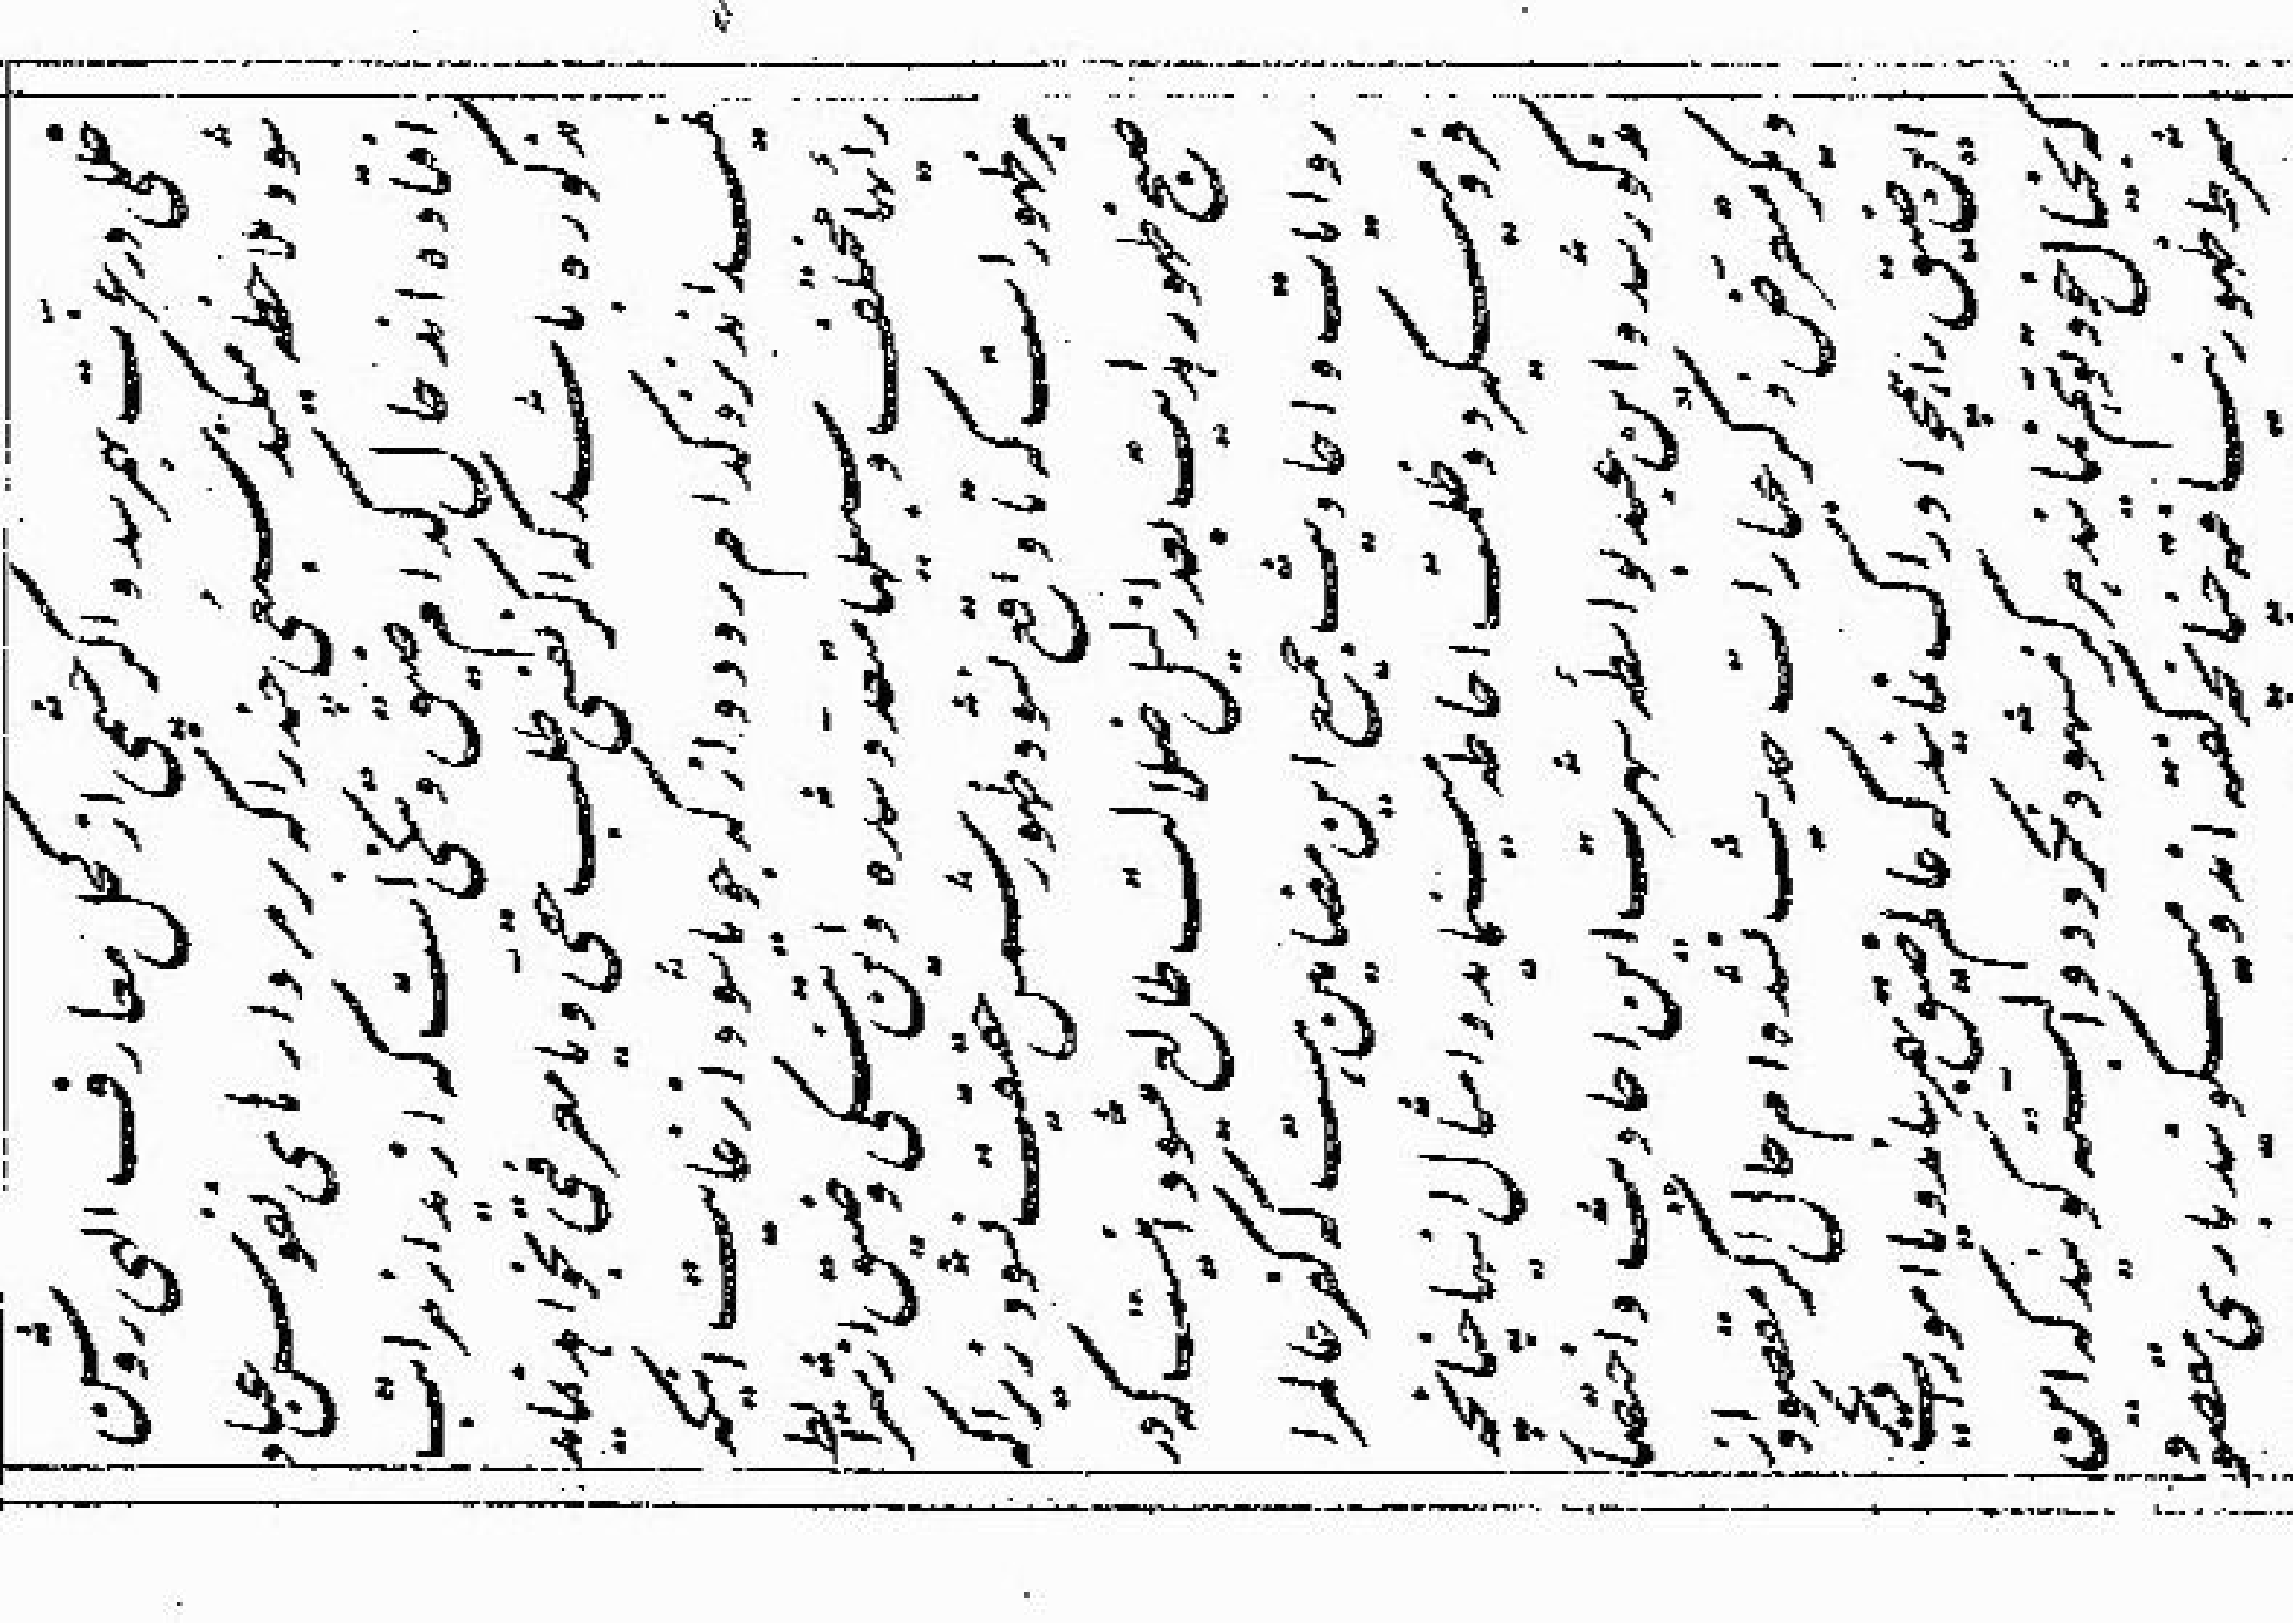 و رغبت بهم رسد و اگر چشمی از کحل معارف الهی روشن
شود ملاحظه میکند سبعی چند را که بر مردارهای نفوس عباد
افتاده‌اند حال کدام ضیق و تنگی است که ازید از مراتب
مذکوره باشد که اگر نفسی طلب حقی و یا معرفتی بخواهد نماید
نمیداند نزد کدام رود و از که جویا شود از غایت اینکه
رأیها مختلف و سبیلها متعدد شده و این تنگی و ضیق از شرایط
هر ظهور است که تا واقع نشود ظهور شمس حقیقت نشود زیرا که
صبح ظهور هدایت بعد از لیل ضلالت طالع میشود اینست که در
روایات و احادیث جمیع این مضامین هست که کفر عالم را
فرو میگیرد و ظلمت احاطه مینماید و امثال اینها چنانچه
مذکور شد و این عبد بواسطه شهرت این احادیث و اختصار
دیگر متعرض ذکر عبارات حدیث نشده ام حال اگر مقصود از
این ضیق را همچو ادراک نمایند که عالم ضیق بهم رساند و یا امورات دیگر
که بخیال خود توهم نمایند هرگز مشهود نگردد و البته گویند که این
شرط ظهور نیافت چنانچه گفته اند و میگویند باری مقصود